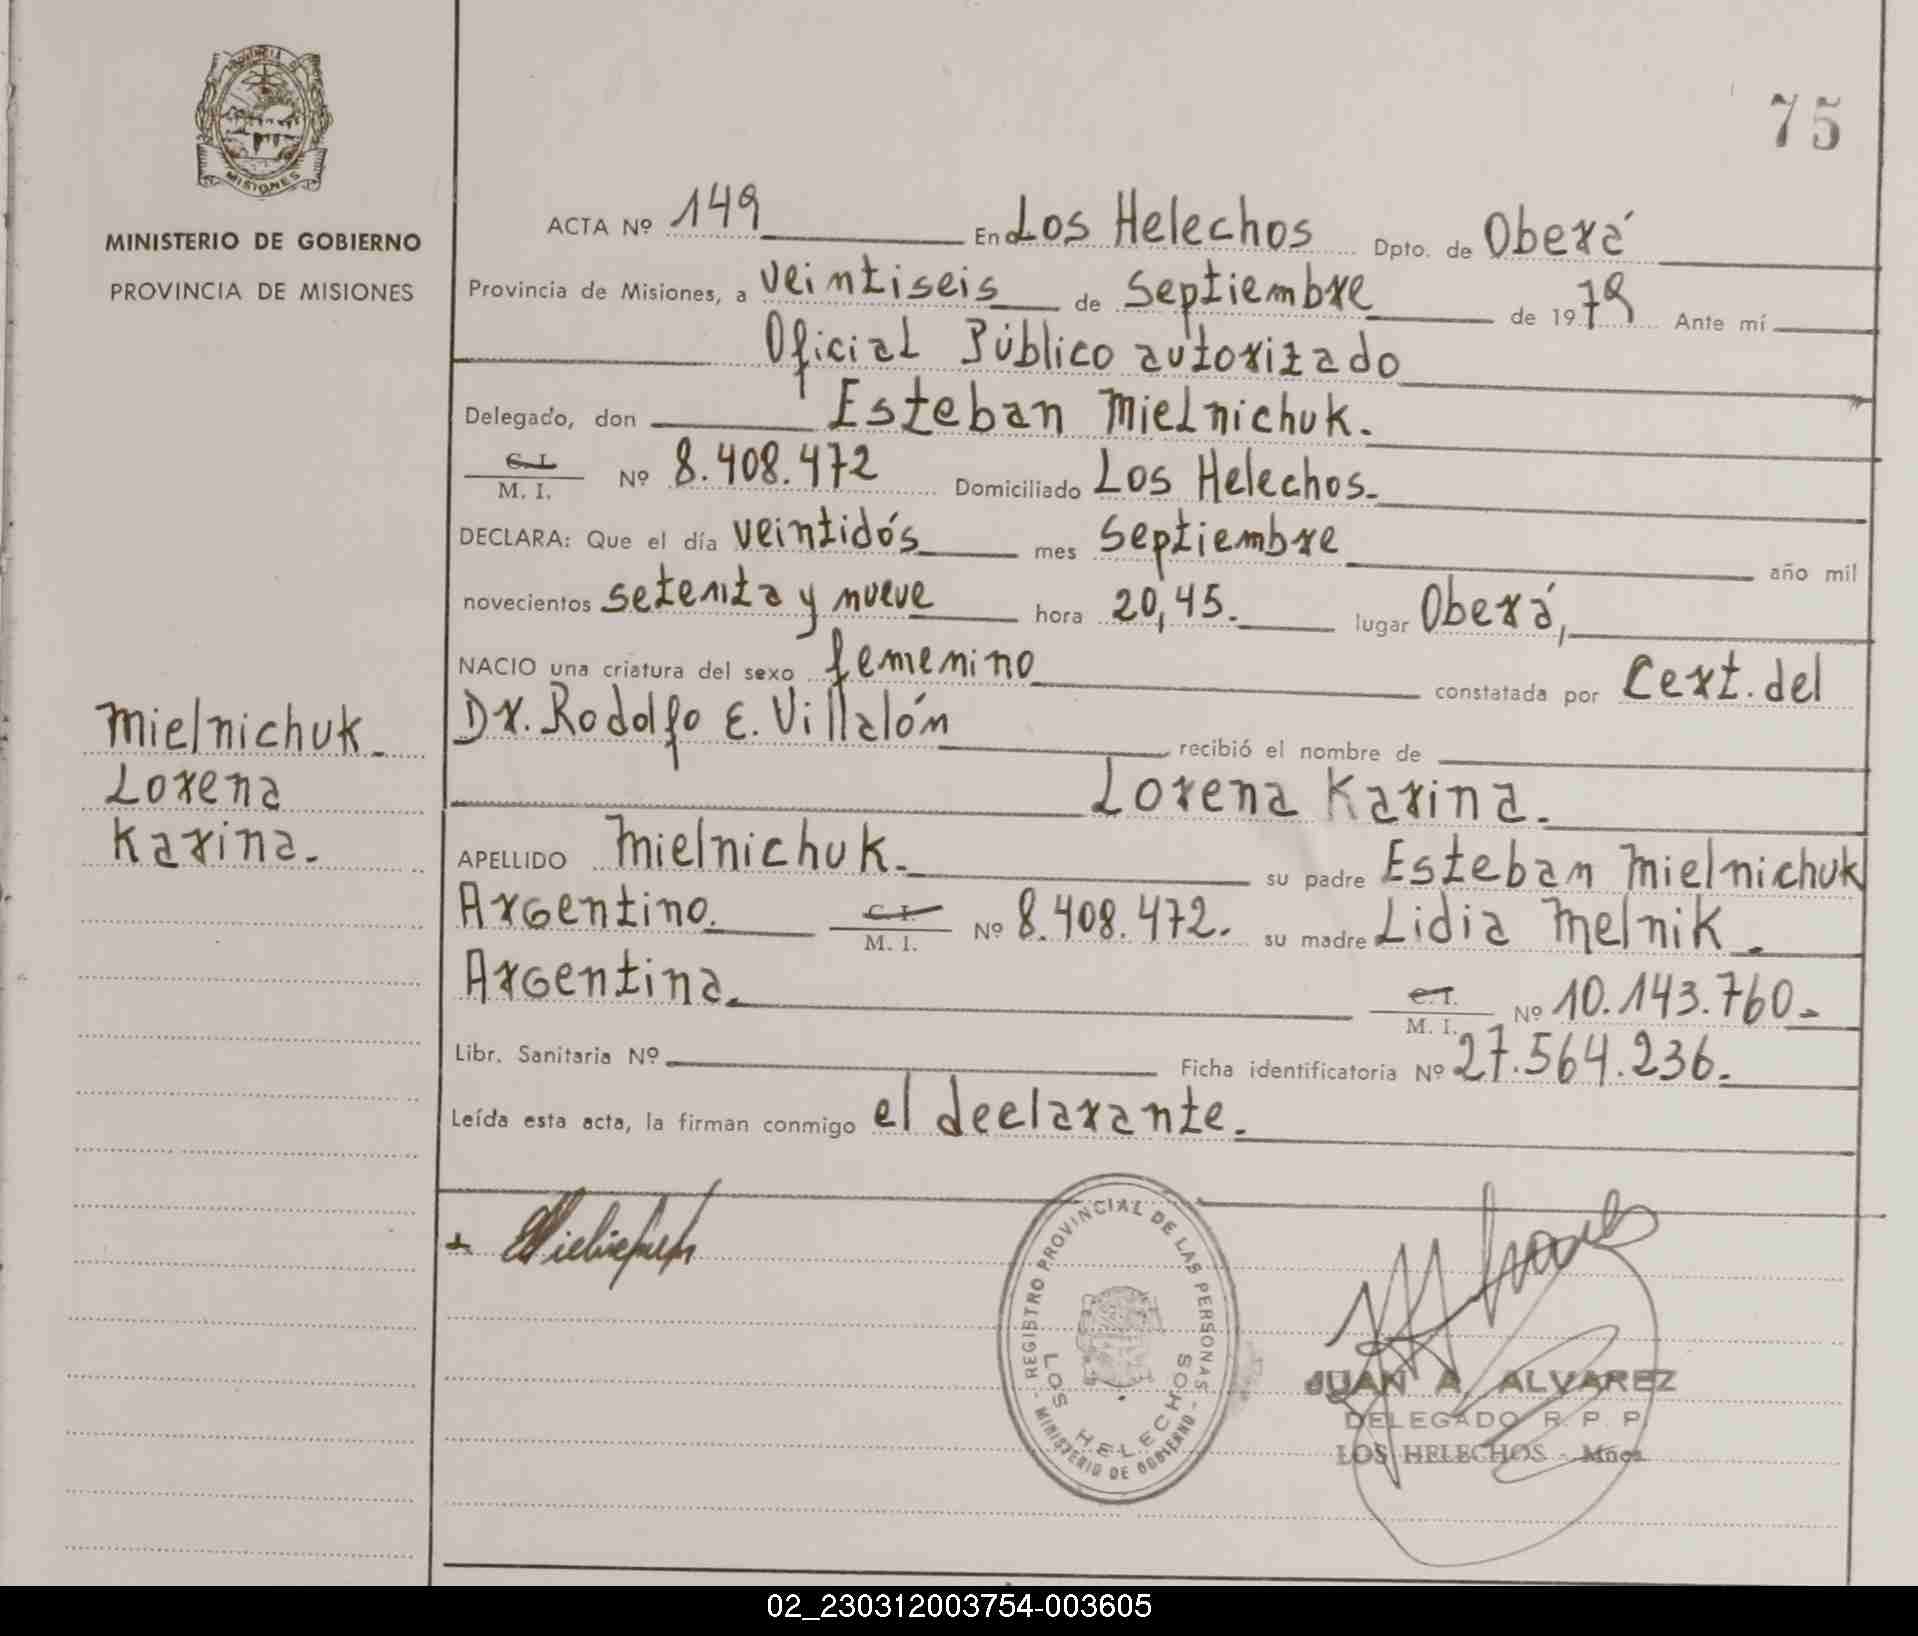 PROVINCIA DE
MISIONES
MINISTERIO DE GOBIERNO
PROVINCIA DE MISIONES
75
ACTA Nº 149 En Los Helechos Dpto. de Oberá
Provincia de Misiones, a veintiseis de Septiembre de 1979 Ante mí
Oficial Público autorizado
Delegado, don Esteban Mielnichuk.
C. I.
M. I. Nº 8.408.472 Domiciliado Los Helechos.
DECLARA: Que el día veintidós mes Septiembre año mil
novecientos setenta y nueve hora 20,45. lugar Oberá,
NACIO una criatura del sexo femenino constatada por Cert. del
Dr. Rodolfo E. Villalón recibió el nombre de
Lorena Karina.
APELLIDO Mielnichuk. su padre Esteban Mielnichuk
Argentino. C. I.
M. I. Nº 8.408.472. su madre Lidia Melnik.
Argentina. C. I.
M. I. Nº 10.143.760.
Libr. Sanitaria Nº Ficha identificatoria Nº 27.564.236.
Leída esta acta, la firman conmigo el declarante.
Mielnichuk.
Lorena
Karina.
REGISTRO PROVINCIAL DE LAS PERSONAS
LOS HELECHOS
- MINISTERIO DE GOBIERNO -
JUAN A. ALVAREZ
DELEGADO R. P. P.
LOS HELECHOS - Mnes.
02_230312003754-003605